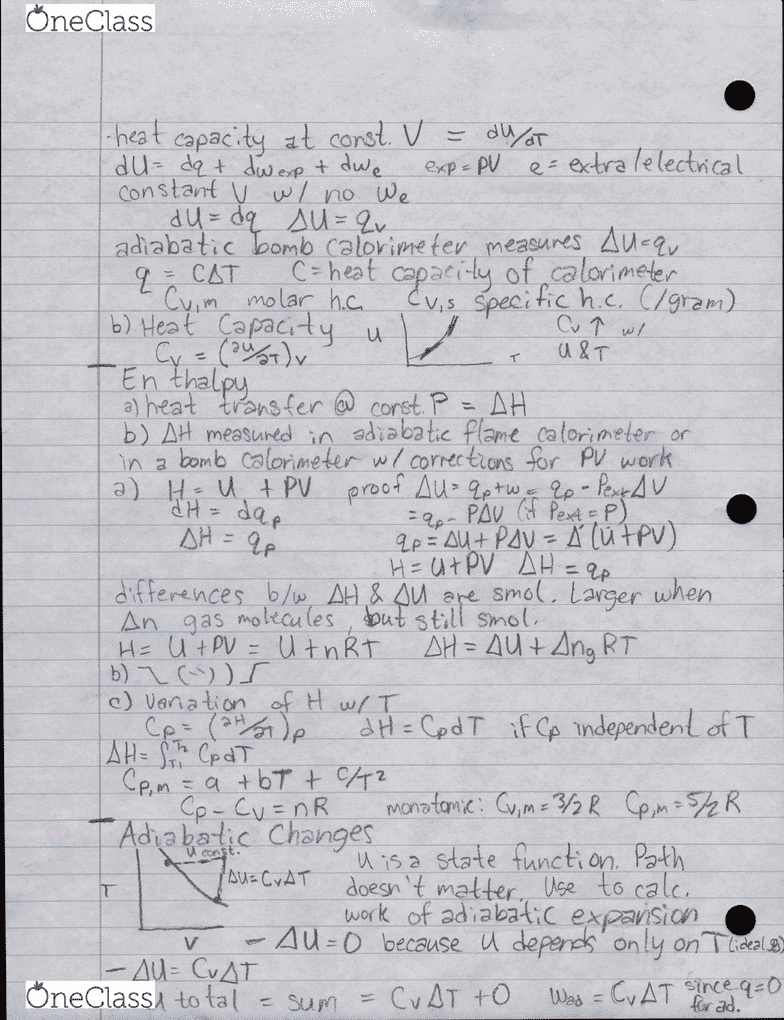 OneClass
-heat capacity at const. V = dU/dT
dU = dq + dwexp + dwe exp = PV e = extra/electrical
constant V w/ no we
dU = dq ΔU = qv
adiabatic bomb calorimeter measures ΔU=qv
q = CΔT C = heat capacity of calorimeter
Cv,m molar h.c. Cv,s specific h.c. (/gram)
b) Heat Capacity U Cv ↑ w/
Cv = (∂U/∂T)v T U & T
Enthalpy
a) heat transfer @ const. P = ΔH
b) ΔH measured in adiabatic flame calorimeter or
in a bomb calorimeter w/ corrections for PV work
a) H = U + PV proof ΔU = qp+w = qp - PextΔV
dH = dqp = qp - PΔV (if Pext = P)
ΔH = qp qp = ΔU + PΔV = Δ(U+PV)
H = U+PV ΔH = qp
differences b/w ΔH & ΔU are smol. Larger when
Δn gas molecules, but still smol.
H = U + PV = U + nRT ΔH = ΔU + Δng RT
b)
c) Variation of H w/ T
Cp = (∂H/∂T)p dH = CpdT if Cp independent of T
ΔH = ∫T1T2 CpdT
Cp,m = a + bT + c/T²
Cp - Cv = nR monatomic: Cv,m = 3/2 R Cp,m = 5/2 R
Adiabatic Changes
U const. U is a state function. Path
T ΔU = CvΔT doesn't matter. Use to calc.
work of adiabatic expansion
V - ΔU = 0 because U depends only on T (ideal g)
- ΔU = CvΔT
OneClass total = sum = CvΔT + 0 wad = CvΔT since q=0
for ad.